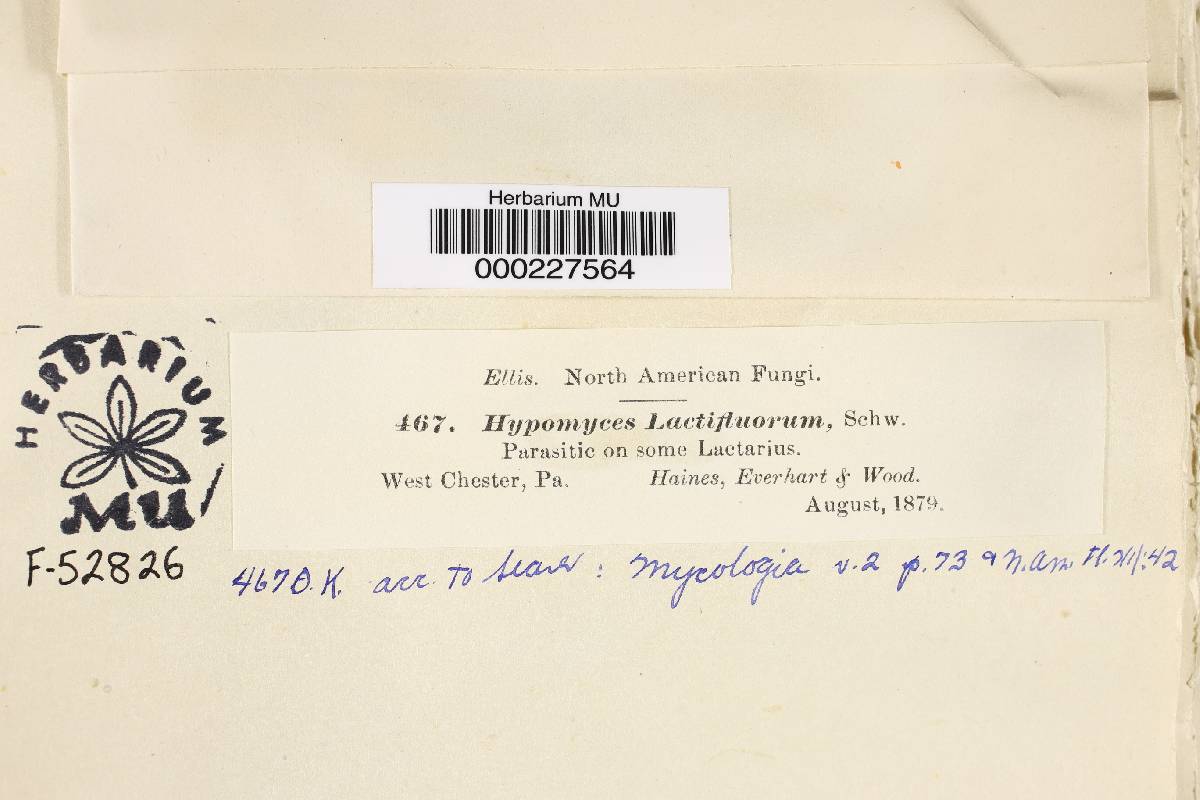 Herbarium MU
000227564
HERBARIUM
MU
F-52826
Ellis. North American Fungi.
467. Hypomyces Lactifluorum, Schw.
Parasitic on some Lactarius.
West Chester, Pa. Haines, Everhart & Wood.
August, 1879.
467 O.K. acc. To Seaver : Mycologia v.2 p.73 & N. Am. Fl. III:42